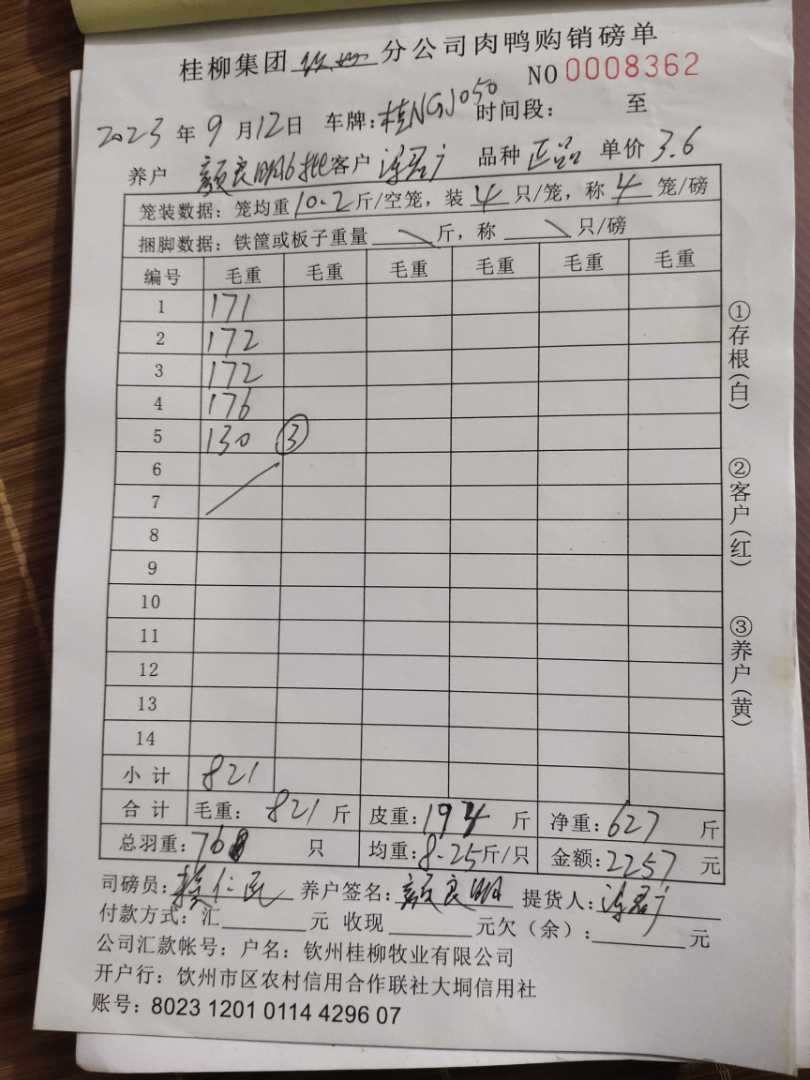 桂柳集团 钦州 分公司肉鸭购销磅单
NO 0008362
2023 年 9 月 12 日 车牌：桂NGJ050 时间段： 至
养户 颜良明6批 客户 品种 正品 单价 3.6
笼装数据：笼均重 10.2 斤/空笼，装 4 只/笼，称 4 笼/磅
捆脚数据：铁筐或板子重量 \ 斤，称 \ 只/磅
编号 毛重 毛重 毛重 毛重 毛重 毛重
1 171
2 172
3 172
4 176
5 130 ③
6
7
8
9
10
11
12
13
14
小 计 821
合 计 毛重： 821 斤 皮重：194 斤 净重：627 斤
总羽重：76 只 均重：8.25 斤/只 金额：2257 元
司磅员： 仁民 养户签名：颜良明 提货人：
付款方式：汇 元 收现 元欠（余）： 元
公司汇款帐号：户名：钦州桂柳牧业有限公司
开户行：饮州市区农村信用合作联社大垌信用社
账号：8023 1201 0114 4296 07
①存根（白）
②客户（红）
③养户（黄）